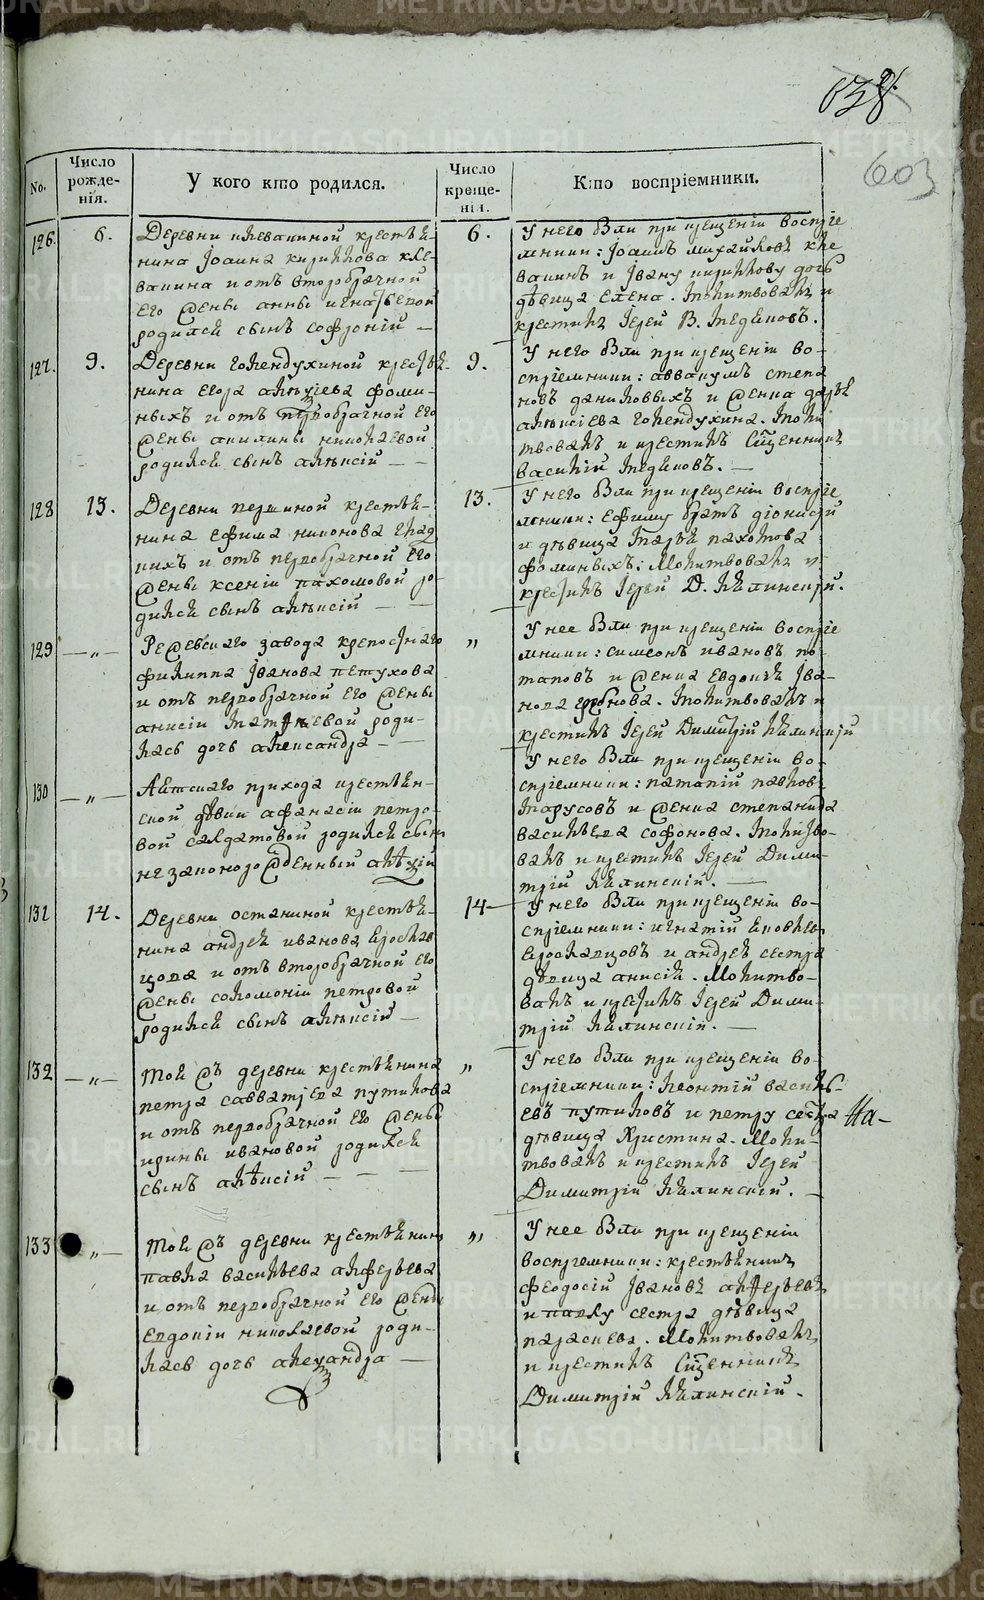 138.
603
No.
Число рожде-нія.
У кого кто родился.
Число креще-нія.
Кто воспріемники.
126. 6.
Деревни клевакиной крестья-
нина Іоанна кириллова кле-
вакина и отъ второбрачной
его жены анны игнатьевой
родился сынъ софроній —
6.
У него были при крещеніи воспріе
мники: Іоаннъ михайловъ кле
вакинъ и Ивану кириллову дочь
дѣвица Елена. Молитвовалъ и
крестилъ Іерей В.
127. 9.
Деревни голендухиной крестья-
нина Егора алексіева фоми-
ныхъ и отъ первобрачной его
жены акилины николаевой
родился сынъ алексій — —
9.
У него были при крещеніи во-
спріемники: аввакумъ степа
новъ даниловыхъ и женка дарья
алексіева голендухина. Моли
твовалъ и крестилъ Сщенникъ
василій
128 13.
Деревни першиной крестья-
нина Ефима никонова глад
кихъ и отъ первобрачной его
жены ксеніи пахомовой ро-
дился сынъ алексій — —
13.
У него были при крещеніи воспріе
мники: Ефиму братъ діонисій
и дѣвица пахомова
фоминыхъ: Молитвовалъ и
крестилъ Іерей Д. Калинскій.
129 — „ —
Режевскаго завода крепостнаго
филиппа Іванова петухова
и отъ первобрачной его жены
анисіи роди-
лась дочь александра — —
„
У нее были при крещеніи воспріе
мники: симеонъ ивановъ по-
таповъ и женка Евдокія Ива-
нова Молитвовалъ и
крестилъ Іерей Димитрій Калинскій
130 — „ —
прихода крестьян-
ской дѣвки афанасіи петро-
вой салдатовой родился сынъ
незаконорожденный алексій
У него были при крещеніи во-
спріемники: паталій павлов
Парусовъ и женка степанида
васильева софонова. Молитво-
валъ и крестилъ Іерей Дими-
трій Калинскій. —
131 14.
Деревни останиной крестья-
нина андрея иванова Ярослав
цова и отъ второбрачной его
жены соломоніи петровой
родился сынъ алексій —
14 —
У него были при крещеніи во-
спріемники: игнатій яковлевъ
Ярославцовъ и андрея сестра
дѣвица анисія. Молитво-
валъ и крестилъ Іерей Дими-
трій Калинскій. —
132 — „ —
Той жъ деревни крестьянина
петра савватіева путилова
и отъ первобрачной его жены
ирины ивановой родился
сынъ алексій — —
„
У него были при крещеніи во-
спріемники: леонтій василь-
евъ путиловъ и петру сестра
дѣвица Христина. Моли-
твовалъ и крестилъ Іерей
Димитрій Калинскій. —
На-
133 „ —
Той жъ деревни крестьянина
павла васильева алферьева
и отъ первобрачной его жены
Евдокіи николаевой роди-
лась дочь александра —
„
У нее были при крещеніи
воспріемники: крестьянинъ
феодосій Івановъ алферьевъ
и павлу сестра дѣвица
параскева. Молитвовалъ
и крестилъ Сщенникъ
Димитрій Калинскій.
METRIKI.GASO-URAL.RU